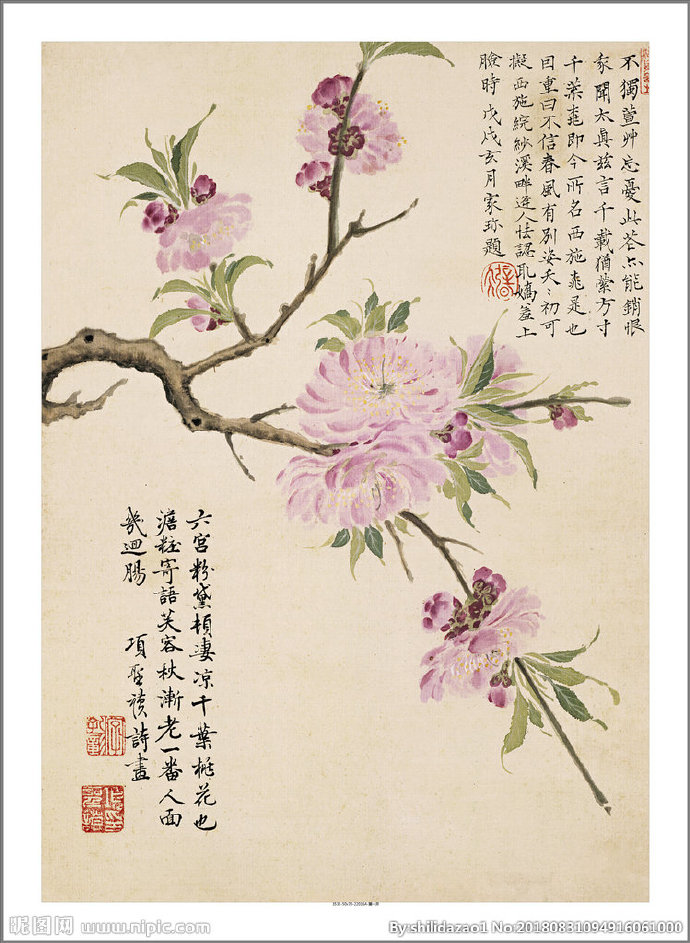 不獨萱艸忘憂此苍亦能銷恨
家聞太真茲言千載猶縈方寸
千葉桃即今所名西施桃是也
因重曰不信春風有別姿夭〻初可
擬西施綄紗溪畔逢人怯認取嬌羞上
臉時 戊戌亥月家珍題
六宮粉黛頓淒涼千葉桃花也
澹粧寄語芙容秋漸老一番人面
幾迴腸
項聖禎詩畫
昵图网 www.nipic.com
By:shilidazao1 No:20180831094916061000